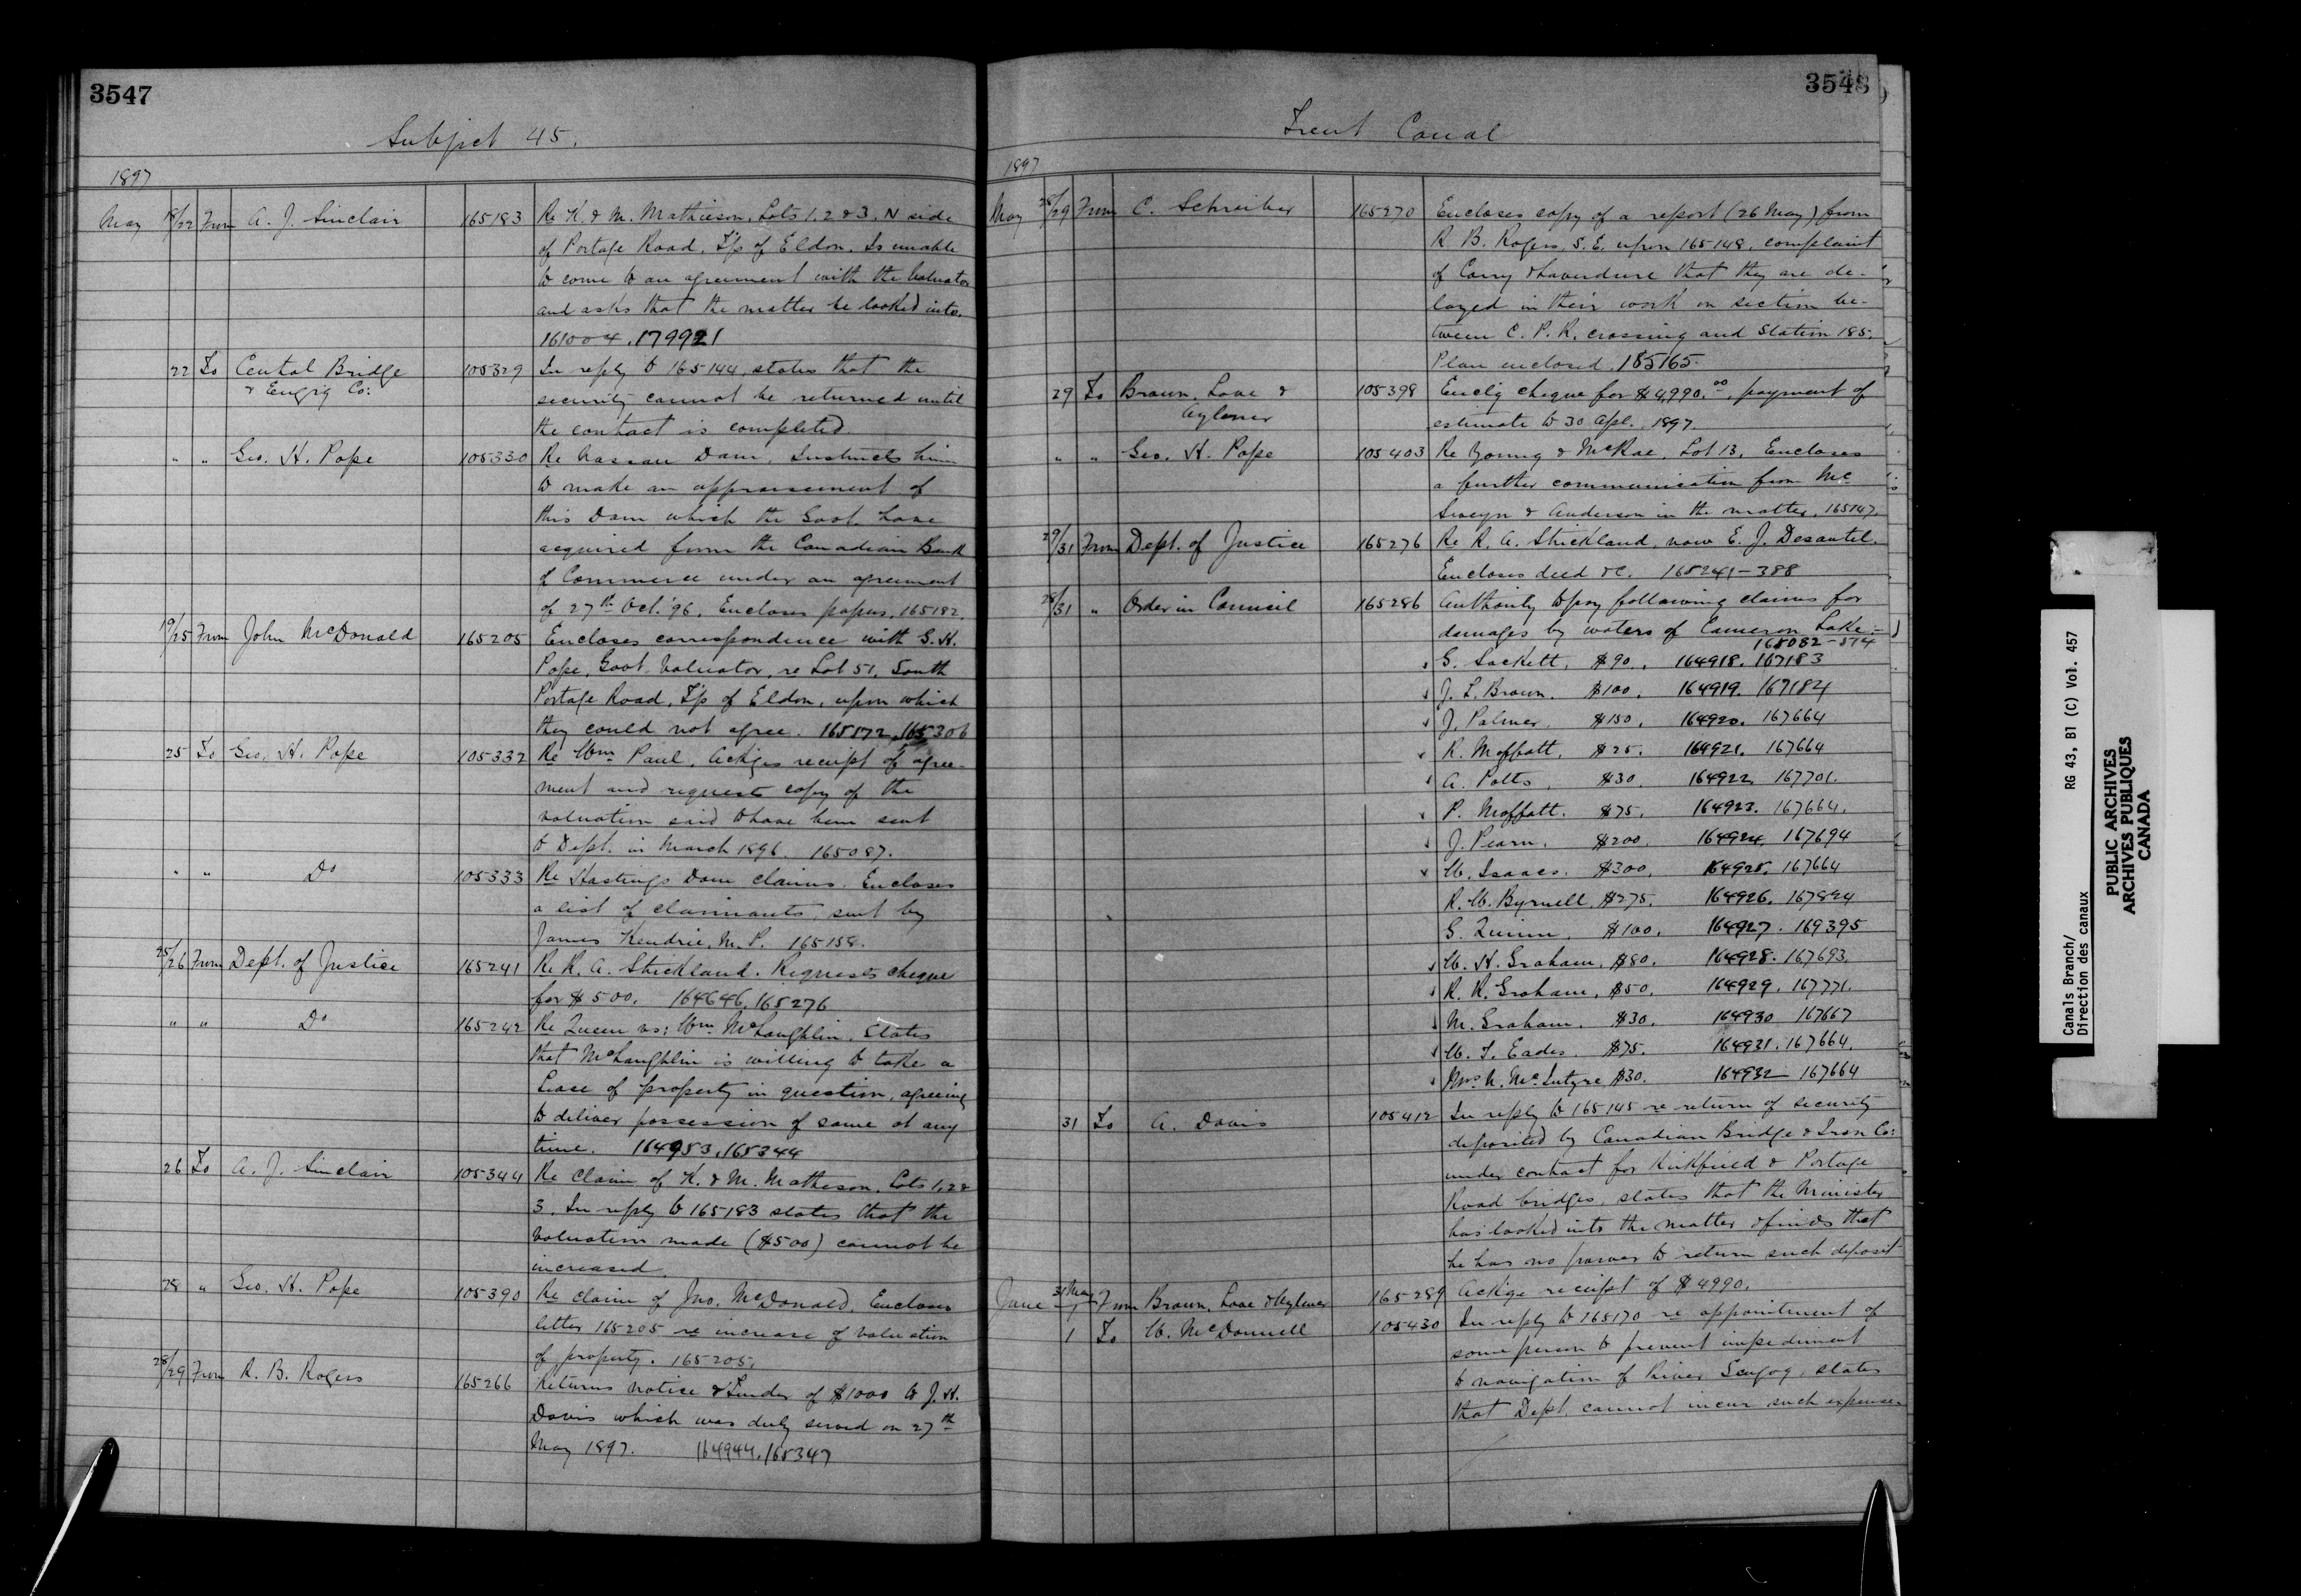 3547
Subject 45.
1897
May 18/22 From A. J. Sinclair 165183 Re K. & M. Mathieson, Lots 1, 2 & 3, N side
of Portage Road, T'p of Eldon. Is unable
to come to an agreement with the Valuator
and asks that the matter be looked into.
161004. 179921
22 To Central Bridge 105329 In reply to 165144, states that the
& Eng'g Co: security cannot be returned until
the contract is completed.
" " Geo. H. Pope 105330 Re Nassau Dam. Instructs him
to make an appraisement of
this Dam which the Govt. have
acquired from the Canadian Bank
of Commerce under an agreement
of 27th Oct. '96. Encloses papers. 165182.
19/25 From John McDonald 165205 Encloses correspondence with G. H.
Pope, Govt Valuator, re Lot 51, South
Portage Road, T'p of Eldon, upon which
they could not agree. 165172. 165306
25 To Geo. H. Pope 105332 Re Wm Paul. Ackges receipt of agree-
ment and requests copy of the
valuation said to have been sent
to Dept. in March 1896. 165087.
" " Do 105333 Re Hastings Dam claims. Encloses
a list of claimants, sent by
James Kendrie, M. P. 165158.
25/26 From Dept. of Justice 165241 Re R. A. Strickland. Requests cheque
for $500. 164646. 165276
" " Do 165242 Re Queen vs: Wm McLaughlin. States
that McLaughlin is willing to take a
Lease of property in question, agreeing
to deliver possession of same at any
time. 164953. 165344
26 To A. J. Sinclair 105344 Re Claim of K. & M. Matheson, Lots 1, 2 &
3. In reply to 165183 states that the
valuation made ($500) cannot be
increased.
28 " Geo. H. Pope 105390 Re claim of Jno. McDonald. Encloses
letter 165205 re increase of valuation
of property. 165205.
28/29 From R. B. Rogers 165266 Returns notice & Tender of $1000 to J. H.
Davis which was duly served on 27th
May 1897. 164944. 165347
3548
Trent Canal
1897
May 28/29 From C. Schreiber 165270 Encloses copy of a report (26 May) from
R. B. Rogers, S. E. upon 165148, complaint
of Corry & Laverdure that they are de-
layed in their work on section be-
tween C. P. R. crossing and Station 185.
Plan enclosed. 185165.
29 To Brown, Love & 105398 Enclg cheque for $4,990.00, payment of
Aylmer estimate to 30 Apl. 1897.
" " Geo. H. Pope 105403 Re Young & McRae, Lot 13. Encloses
a further communication from Mc
Sweyn & Anderson in the matter. 165147.
29/31 From Dept. of Justice 165276 Re R. A. Strickland, now E. J. Desautel.
Encloses deed &c. 165241-388
28/31 " Order in Council 165286 Authority to pay following claims for
damages by waters of Cameron Lake:-
165082-574
G. Sackett, $90. 164918. 167183
J. L. Brown. $100. 164919. 167184
J. Palmer. $150. 164920. 167664
R. Moffatt, $25. 164921. 167664
A. Potts, $30. 164922. 167701.
P. Moffatt. $75. 164923. 167664.
J. Pearn. $200. 164924. 167694
W. Isaacs. $300. 164925. 167664
R. W. Byrnell, $275. 164926. 167824
G. Quinn, $100. 164927. 169395
W. H. Graham, $80. 164928. 167693.
R. R. Graham, $50. 164929. 167771.
M. Graham. $30. 164930 167667
W. T. Eades. $75. 164931. 167664.
Mrs N. McIntyre $30. 164932 - 167664
31 To A. Davis 105412 In reply to 165145 re return of security
deposited by Canadian Bridge & Iron Co:
under contract for Kirkfield & Portage
Road bridges, states that the Minister
has looked into the matter & finds that
he has no power to return such deposit
June 31 May/1 From Brown, Love & Aylmer 165289 Ackge receipt of $4990.
1 To W. McDonnell 105430 In reply to 165170 re appointment of
some person to prevent impediment
to navigation of River Scugog, states
that Dept. cannot incur such expense.
Canals Branch/ RG 43, B1 (C) Vol. 457
Direction des canaux
PUBLIC ARCHIVES
ARCHIVES PUBLIQUES
CANADA